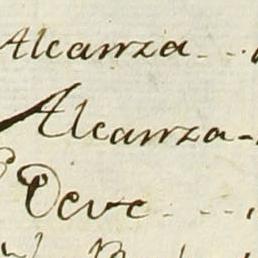 Alcanza
Alcanza
Deve